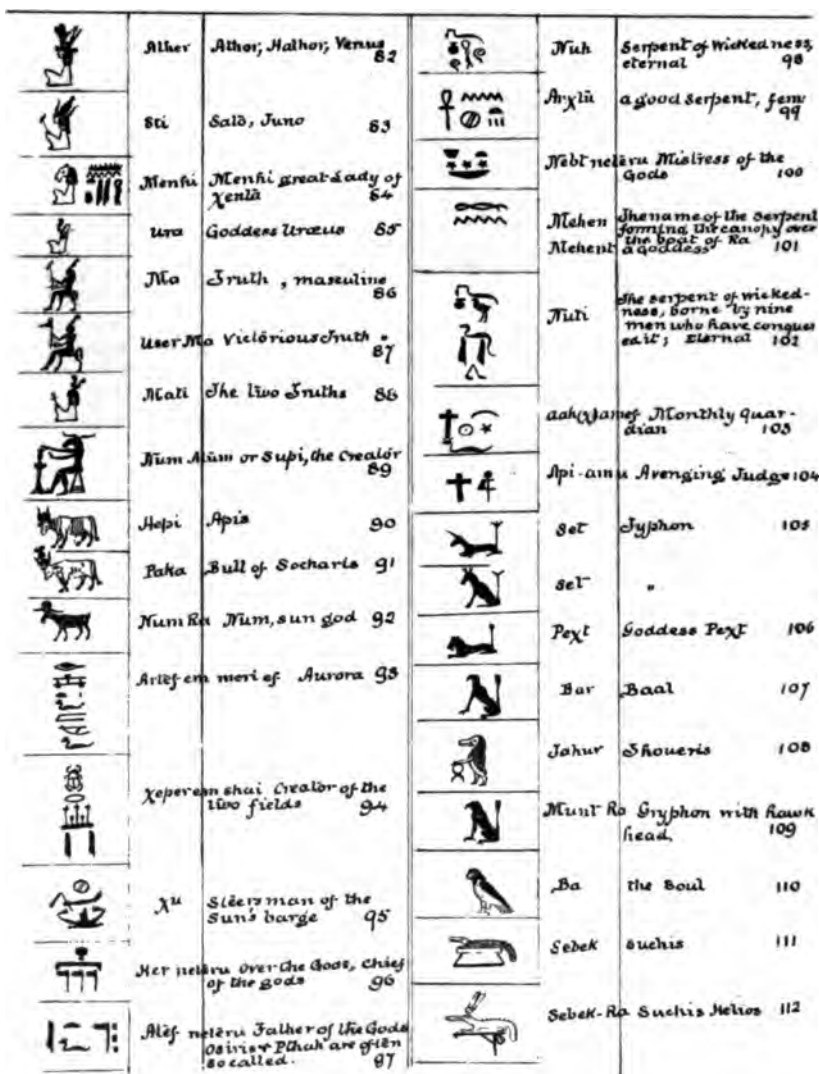 Ather Athor, Hathor, Venus
82
Sti Satō, Juno 83
Menhi Menhi great Lady of
Xentā 84
Ura Goddess Uræus 85
Ma Truth, masculine
86
User Ma Victōrious Truth "
87
Mati The two Truths 88
Num Atūm or Supi, the Creatōr
89
Hepi Apis 90
Paka Bull of Socharis 91
Num Ra Num, sun god 92
Artēf em meri ef Aurora 93
Xeper em shai Creatōr of the
two fields 94
Xu Stēersman of the
Sun's barge 95
Her netēru Over the Gods, Chief
of the gods 96
Atēf netēru Father of the Gods
Osiris & Pthah are oftēn
so called. 97
Nuh Serpent of Wickedness,
eternal 98
Arχtū a good serpent, fem
99
Nebt netēru Mistress of the
Gods 100
Mehen The name of the Serpent
forming the canopy over
the boat of Ra
Mehent a goddess 101
Nuti The serpent of wicked-
ness, borne by nine
men who have conquer
ed it; Eternal 102
aah(χ)ames Monthly Guar-
dian 103
Api-amu Avenging Judge 104
Set Typhon 105
Set "
Peχt Goddess Peχt 106
Bar Baal 107
Tahur Thoueris 108
Munt Ra Gryphon with hawk
head. 109
Ba the Soul 110
Sebek Suchis 111
Sebek-Ra Suchis Helios 112